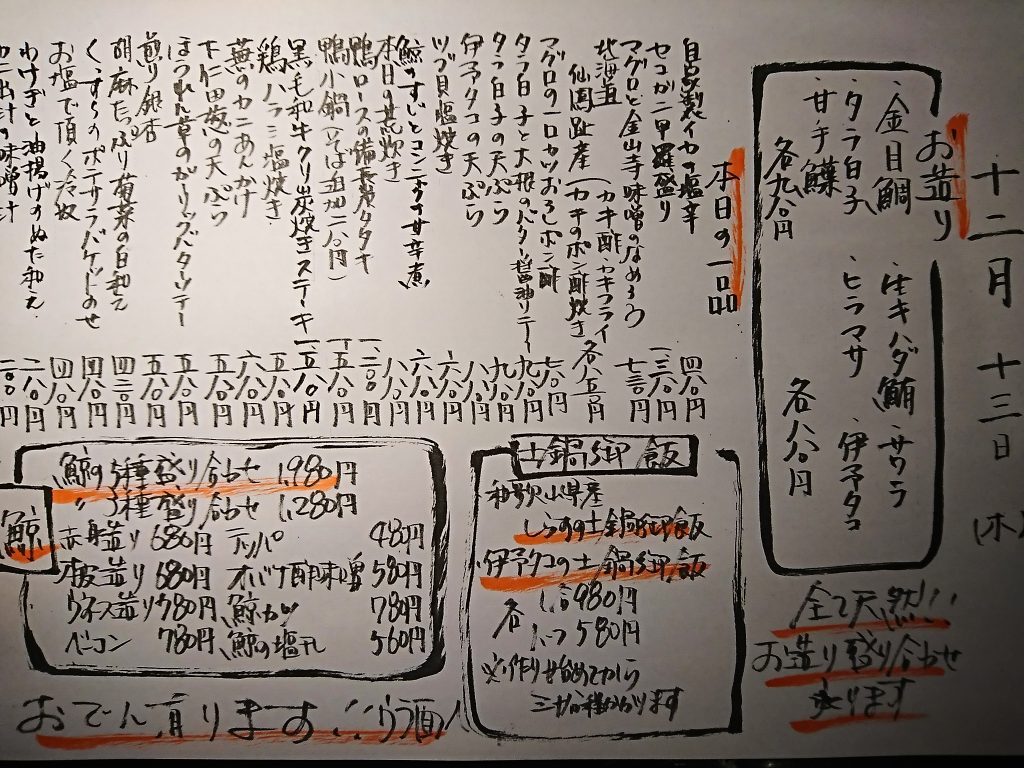 十二月 十三日 (木)
お造り
・金目鯛 ・生キハダ鮪 ・サワラ
・タラ白子 ・ヒラマサ ・伊予タコ
・甘手鰈
各九八〇円 各八八〇円
全て天然!!
お造り盛り合わせ
承ります
本日の一品
自家製イカの塩辛 四八〇円
セコガニ甲羅盛り 一三八〇円
マグロと金山寺味噌のなめろう 七三〇円
北海道 (カキ酢・カキフライ
仙鳳趾産 (カキのポン酢炊き 各八五〇円
マグロの一口カツおろしポン酢 七八〇円
タラ白子と大根のバター醤油ソテー 九八〇円
タラ白子の天ぷら 九八〇円
伊予タコの天ぷら 八八〇円
ツブ貝塩炊き 六八〇円
鯨のすじとコンニャク甘辛煮 六八〇円
本日の荒炊き 八八〇円
鴨ロースの備長炭タタキ 一二〇〇円
鴨小鍋(そば追加二八〇円) 一五八〇円
黒毛和牛クリ炭焼きステーキ 一五八〇円
鶏ハラミ塩焼き 六八〇円
蕪のカニあんかけ 六八〇円
下仁田葱の天ぷら 五八〇円
ほうれん草のガーリックバターソテー 五八〇円
煎り銀杏 五八〇円
胡麻たっぷり菊菜の白和え 四三〇円
くじらのポテサラバゲットのせ 四八〇円
お塩で頂く冷奴 四八〇円
わけぎと油揚げのぬた和え 二八〇円
カニ出汁の味噌汁 二〇〇円
土鍋御飯
和歌山県産
しらすの土鍋御飯
伊予タコの土鍋御飯
各 1合 980円
1/2 580円
※作り始めてから
三十分程かかります
鯨
鯨の5種盛り合わせ 1,980円
〃 3種盛り合わせ 1,280円
赤身造り 680円 テッパ 480円
本皮造り 680円 オバケ酢味噌 580円
ウネス造り 780円 鯨カツ 780円
ベーコン 780円 鯨の塩干 560円
おでん有ります!!(ウラ面)